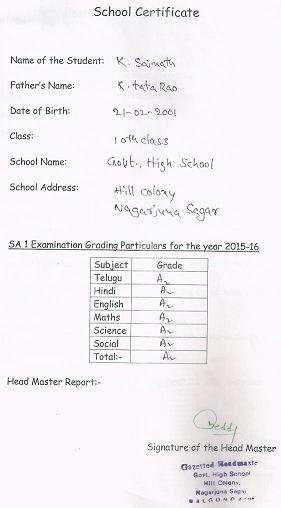 School Certificate
Name of the Student: K. Sainath
Father's Name: K. tata Rao
Date of Birth: 21-02-2001
Class: 10th class
School Name: Govt., High School
School Address: Hill colony
Nagarjuna Sagar
SA 1 Examination Grading Particulars for the year 2015-16
Subject Grade
Telugu A2
Hindi A2
English A2
Maths A2
Science A2
Social A2
Total:- A2
Head Master Report:-
Reddy
Signature of the Head Master
Gazetted Headmaste
Govt. High School
Hill Colony,
Nagarjuna Sagar